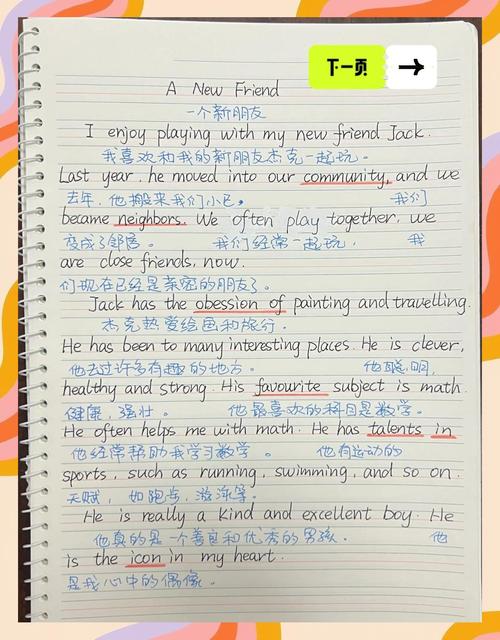 下一页 →
A New Friend
一个新朋友
I enjoy playing with my new friend Jack.
我喜欢和我的新朋友杰克一起玩。
Last year, he moved into our community, and we
去年,他搬来我们小区, 我们
became neighbors. We often play together, we
变成了邻居。 我们经常一起玩, 我
are close friends, now.
们现在已经是亲密的朋友了。
Jack has the obession of painting and travelling.
杰克热爱绘画和旅行.
He has been to many interesting places. He is clever,
他去过许多有趣的地方。 他聪明,
healthy and strong. His favourite subject is math.
健康,强壮。 他最喜欢的科目是数学。
He often helps me with math. He has talents in
他经常帮助我学习数学。 他有运动的
sports, such as running, swimming, and so on.
天赋, 如跑步,游泳等。
He is really a kind and excellent boy. He
他真的是一个善良和优秀的男孩. 他
is the icon in my heart.
是我心中的偶像。